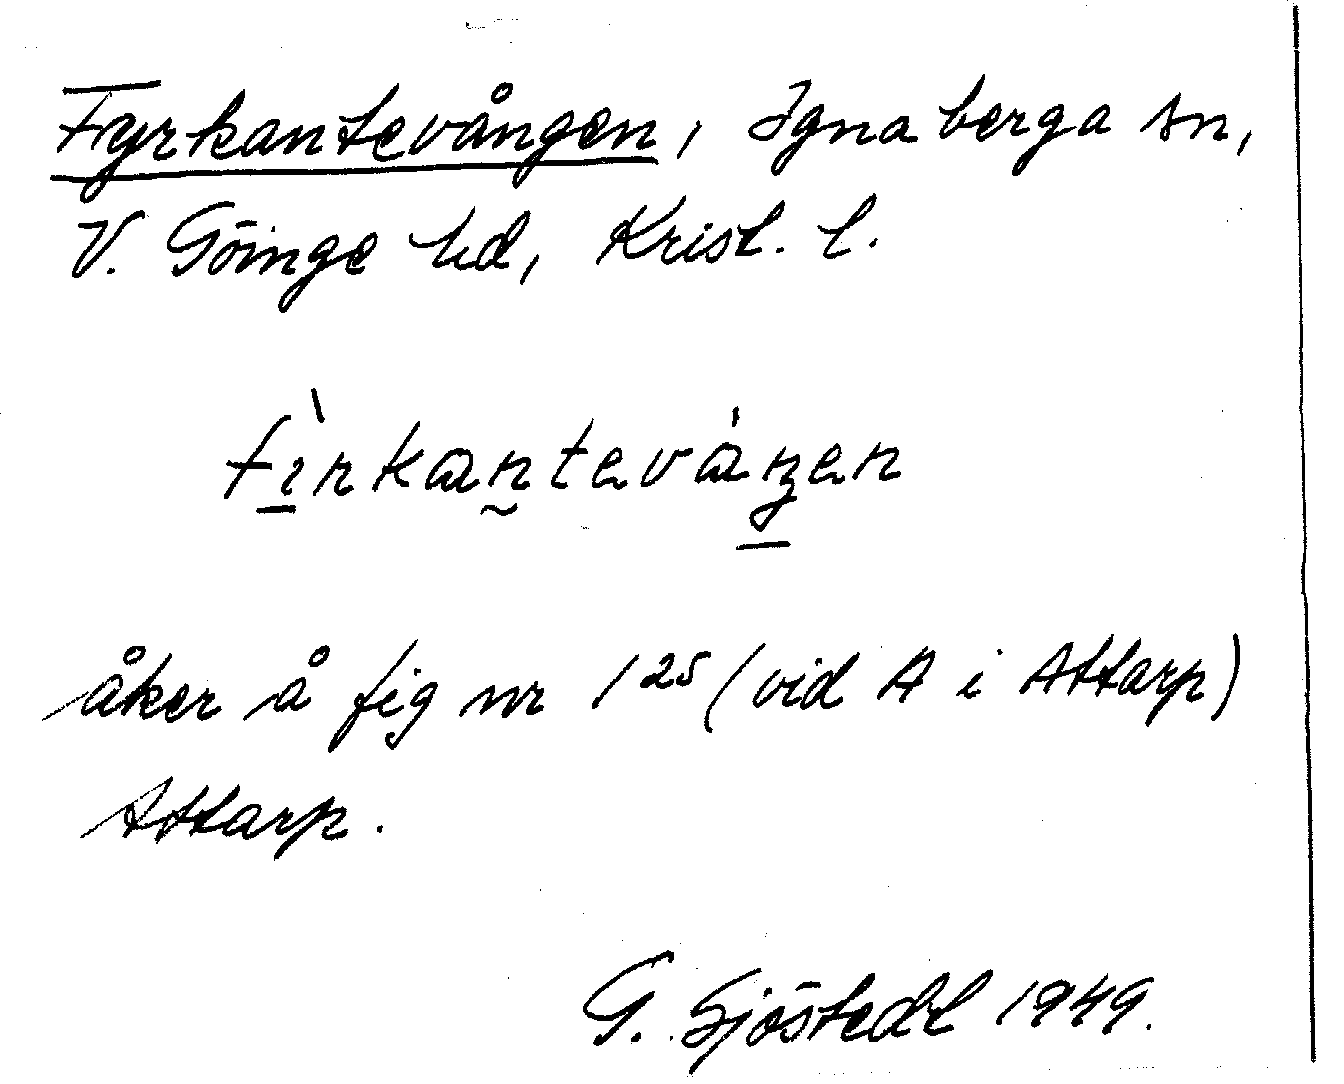 Fyrkantevången, Ignaberga sn,
V. Göinge hd, Krist. l.
fìrkantevåŋen
åker å fig nr 1 25 (vid A i Attarp)
Attarp.
G. Sjöstedt 1949.